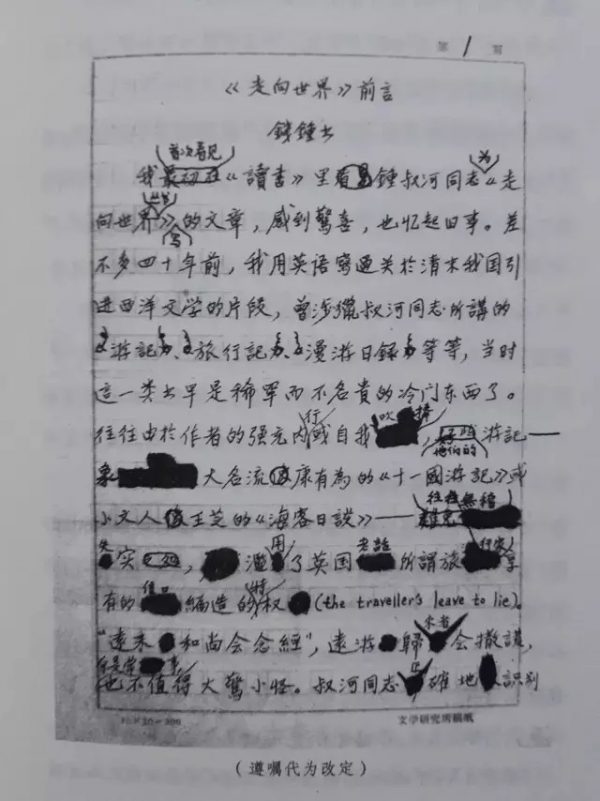 第 1 頁
《走向世界》前言
錢鍾书
首次看见
我最初在《讀書》里看見鍾叔河同志为《走
丛书
向世界》的文章，感到驚喜，也忆起旧事。差
写
不多四十年前，我用英语寫過关於清末我国引
进西洋文学的片段，曾涉獵叔河同志所講的
游記、旅行記、漫游日錄等等，当时
这一类书早是稀罕而不名貴的冷门东西了。
行 吹捧
往往由於作者的强充内或自我，游記——
他们的
象大名流康有為的《十一國游記》或
往往無稽
小文人王芝的《海客日談》——
失实，濫用了英国老話所謂旅行家享
有的信口編造的特权(the traveller's leave to lie)。
"遠来和尚会念經"，遠游歸来者会撒謊，
原是常事
也不值得大驚小怪。叔河同志正確地識别
15×20=300 文学研究所稿紙
（遵囑代为改定）